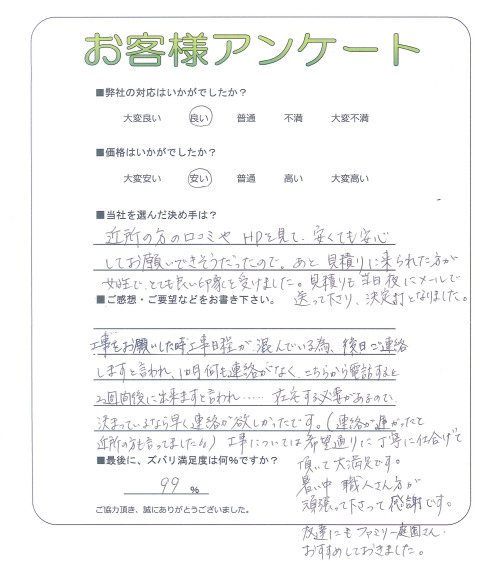 お客様アンケート
■弊社の対応はいかがでしたか？
大変良い 良い 普通 不満 大変不満
■価格はいかがでしたか？
大変安い 安い 普通 高い 大変高い
■当社を選んだ決め手は？
近所の方の口コミや HPを見て、安くても安心
してお願いできそうだったので。あと 見積りに来られた方が
女性で、とても良い印象を受けました。見積りも当日夜にメールで
送って下さり、決定打となりました。
■ご感想・ご要望などをお書き下さい。
工事をお願いした時工事日程が混んでいる為、後日ご連絡
しますと言われ、10日何も連絡がなく、こちらから電話すると
2週間後に出来ますと言われ…… 在宅する必要があるので、
決まっているなら早く連絡が欲しかったです。(連絡が遅かったと
近所の方も言ってましたね) 工事については希望通りに丁寧に仕上げて
頂いて大満足です。
暑い中 職人さん方が
頑張って下さって感謝です。
友達にもファミリー庭園さん
おすすめしておきました。
■最後に、ズバリ満足度は何％ですか？
99 %
ご協力頂き、誠にありがとうございました。